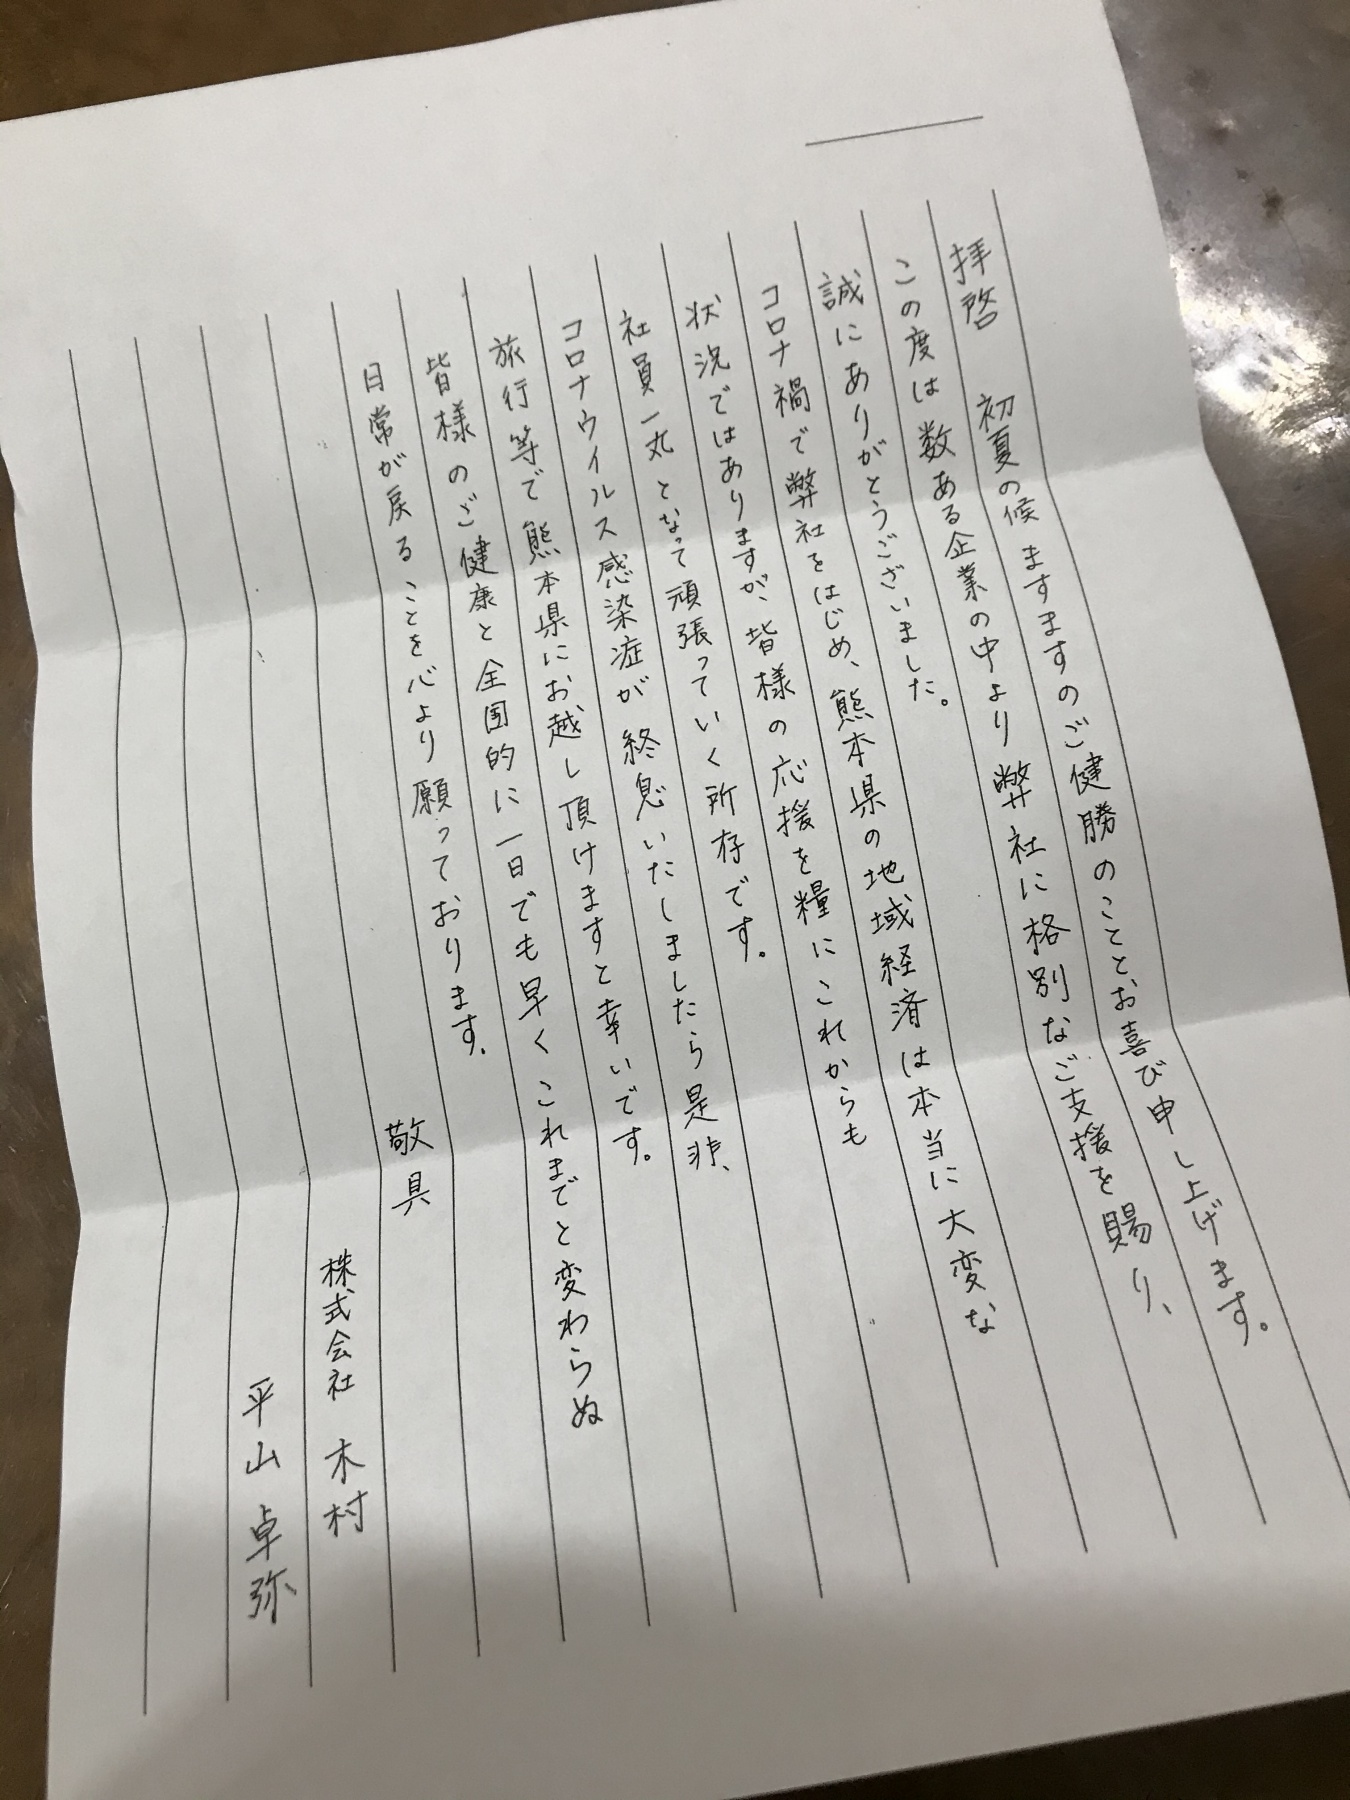 拝啓　初夏の候ますますのご健勝のこととお喜び申し上げます。
この度は数ある企業の中より弊社に格別なご支援を賜り、
誠にありがとうございました。
コロナ禍で弊社をはじめ、熊本県の地域経済は本当に大変な
状況ではありますが、皆様の応援を糧にこれからも
社員一丸となって頑張っていく所存です。
コロナウイルス感染症が終息いたしましたら是非、
旅行等で熊本県にお越し頂けますと幸いです。
皆様のご健康と全国的に一日でも早くこれまでと変わらぬ
日常が戻ることを心より願っております。
敬具
株式会社　木村
平山卓弥